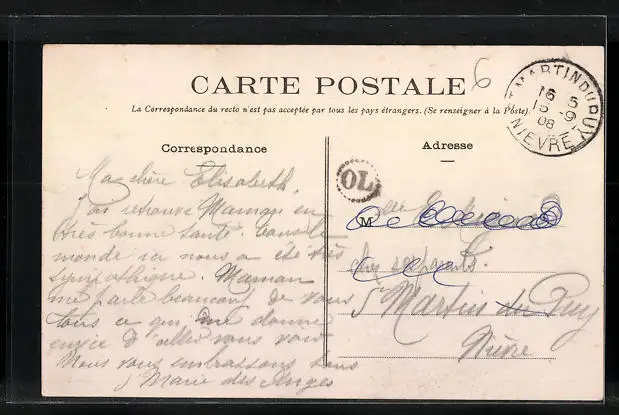 CARTE POSTALE
6
La Correspondance du recto n'est pas acceptée par tous les pays étrangers. (Se renseigner à la Poste).
Correspondance
Adresse
ST MARTIN DU PUY
16 5
15 -9
08
NIEVRE
OL
M
Ma chère Elisabeth,
J'ai retrouvé Maman en
très bonne santé. tout le
monde ici nous a été très
sympathique. Maman
me parle beaucoup de vous
tous ce qui me donne
envie d'aller vous voir
Nous vous embrassons tous
S Marie des Anges
chez ses parents
St Martin du Puy
Nièvre